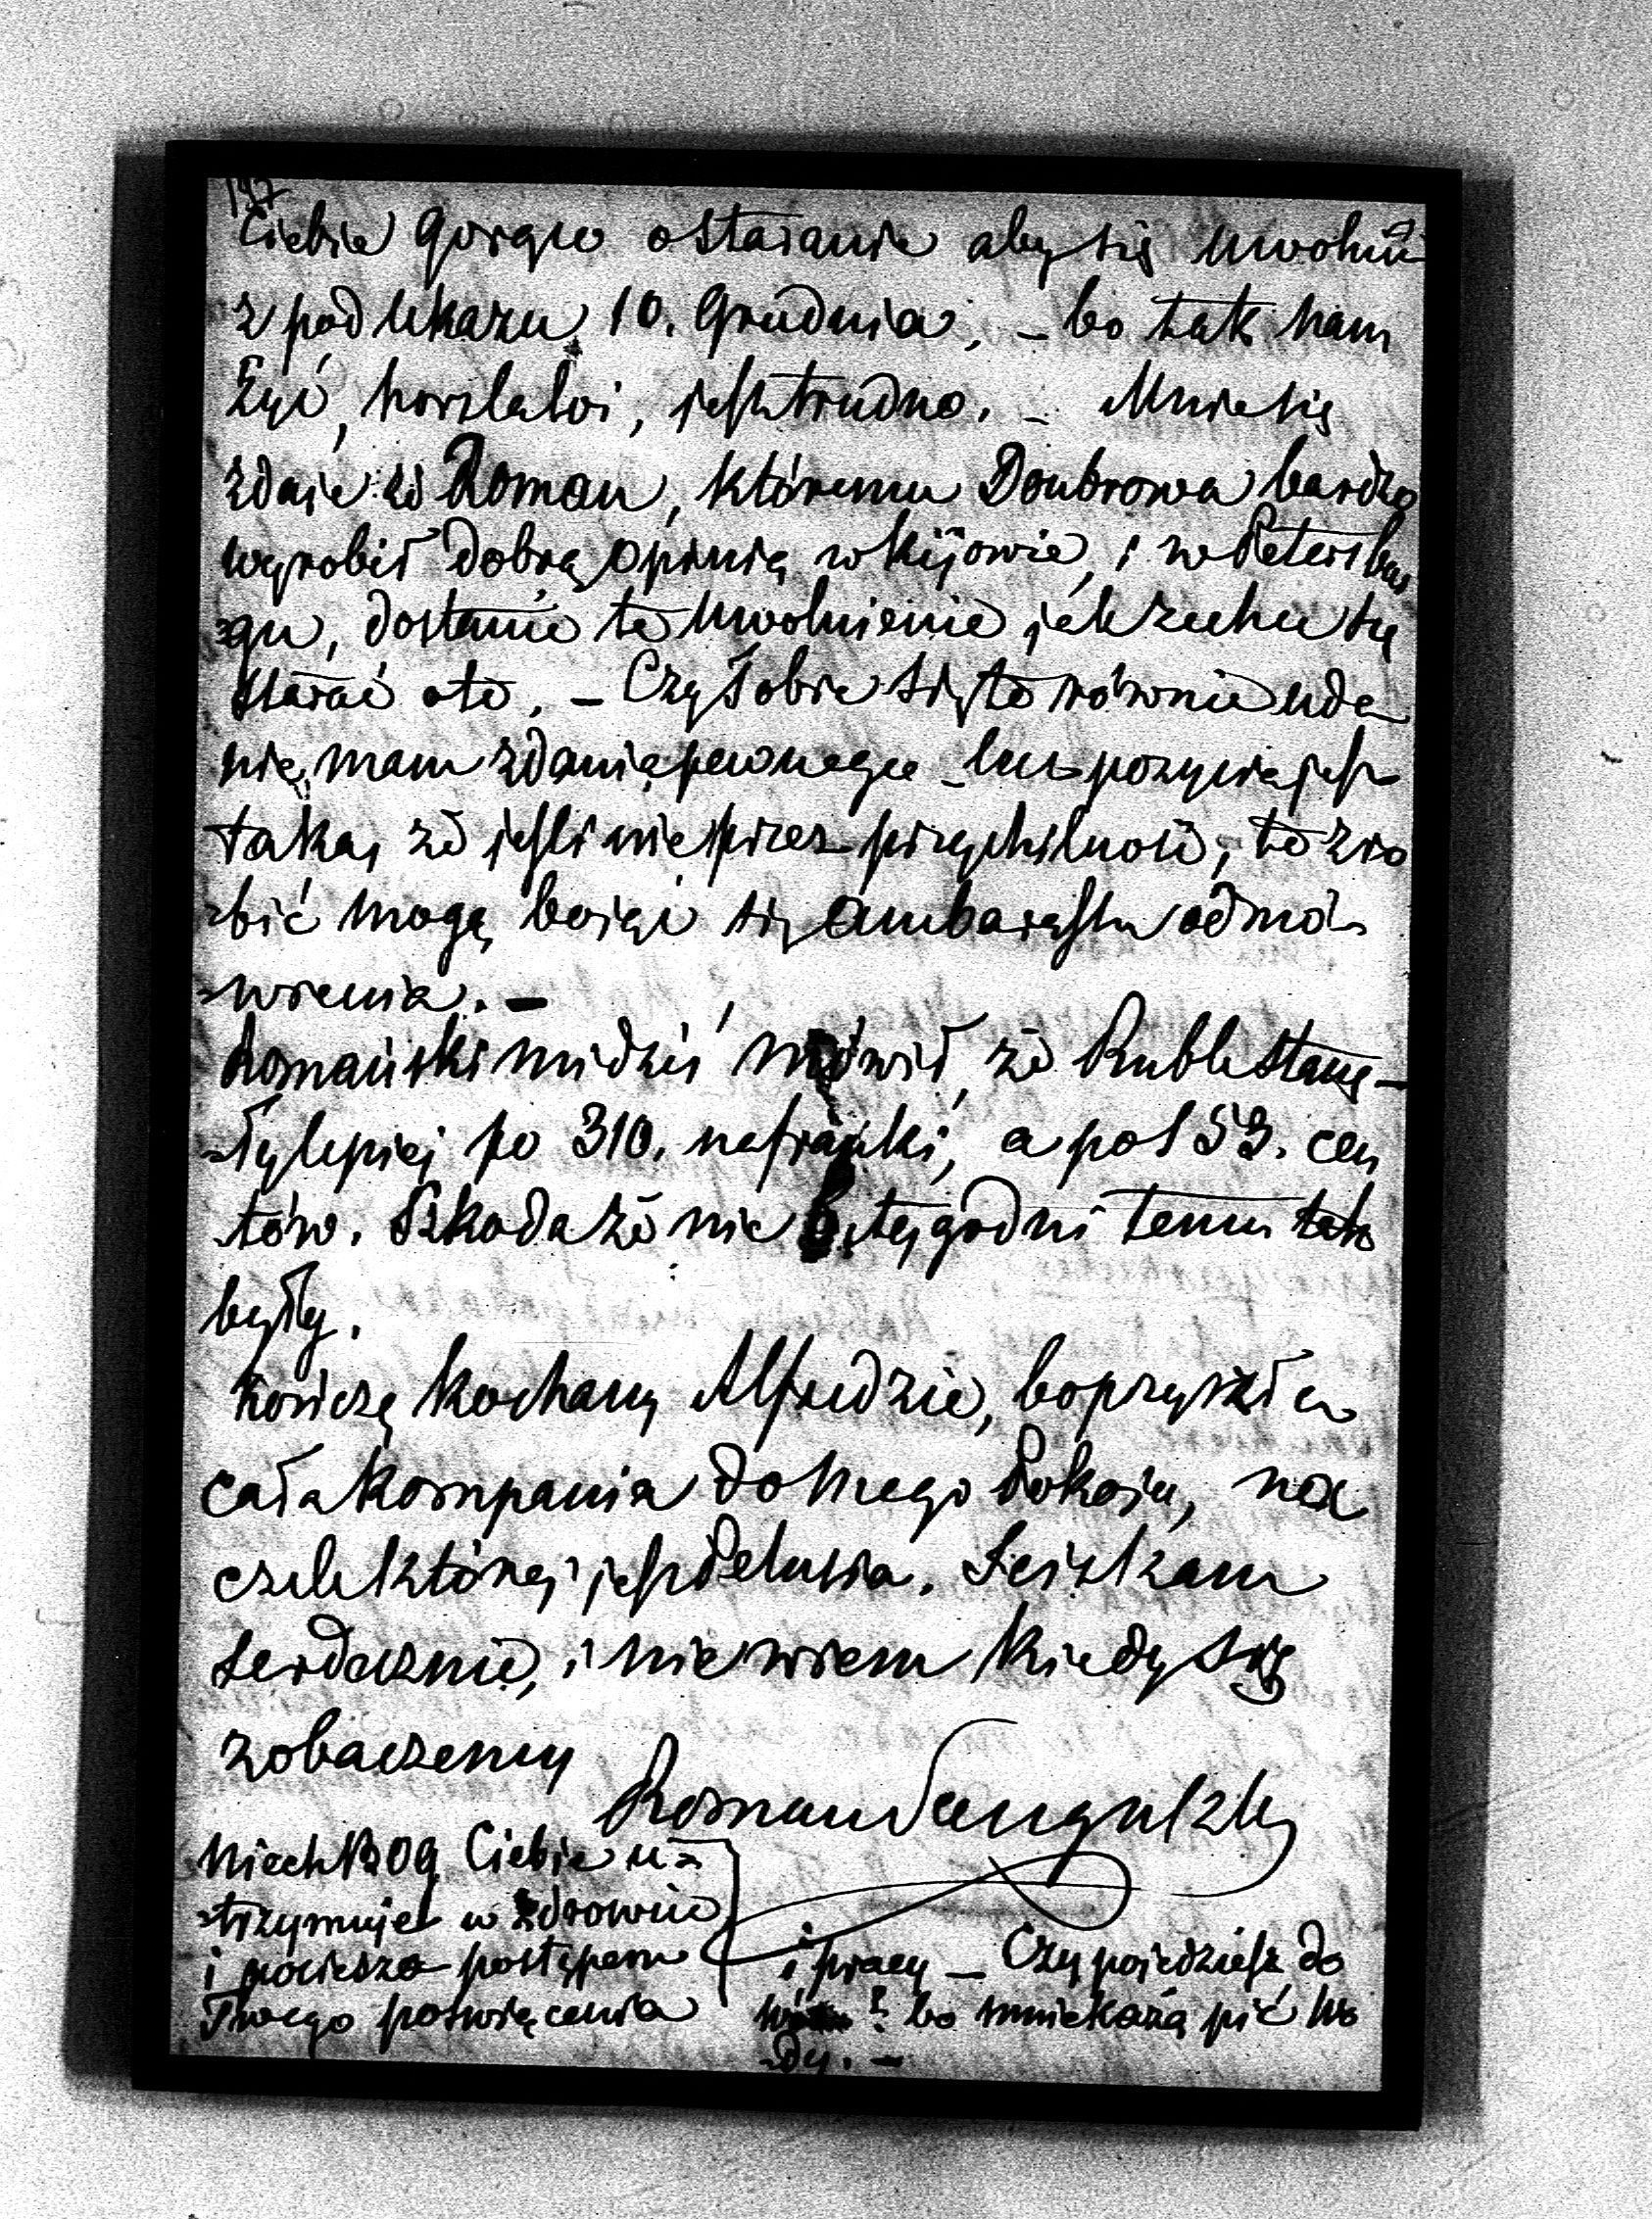 147
Ciebie gorąco o staranie aby się uwolnić
z pod ukazu 10. Grudnia, – bo tak nam
żyć, hors la loi, jest trudno. – Mnie się
zdaje że Roman, któremu Doubrowa bardzo
wyrobił dobrą opinią w Kijowie, i w Petersbur
=gu, dostanie to uwolnienie jak zechce się
starać o to, – Czy Tobie się to równie uda
nie mam zdania pewnego – lecz pozycia jest
taka, że jeśli nie przez przychilność, to zro
=bić mogą bojąc się ambarasu odmó=
=wienia. –
Romański mi dziś mówił, że Ruble staną–
=ły lepiej po 310. na franki, a po 153. cen
tów. Szkoda że nie tygodni temu tak
były.
Kończę kochany Alfredzie, bo przyszła
cała kompania do mego Pokoju, na
czele której jest Helusia. Ściskam
serdecznie, i nie wiem kiedy się
zobaczemy
Roman Sanguszko
Niech Bog Ciebie u=
=trzymuje w zdrowiu
i pociesza postępem
Twego poświęcenia
i pracy – Czy pojedziesz do
wód ? bo mnie każą pić wo
=dy. –